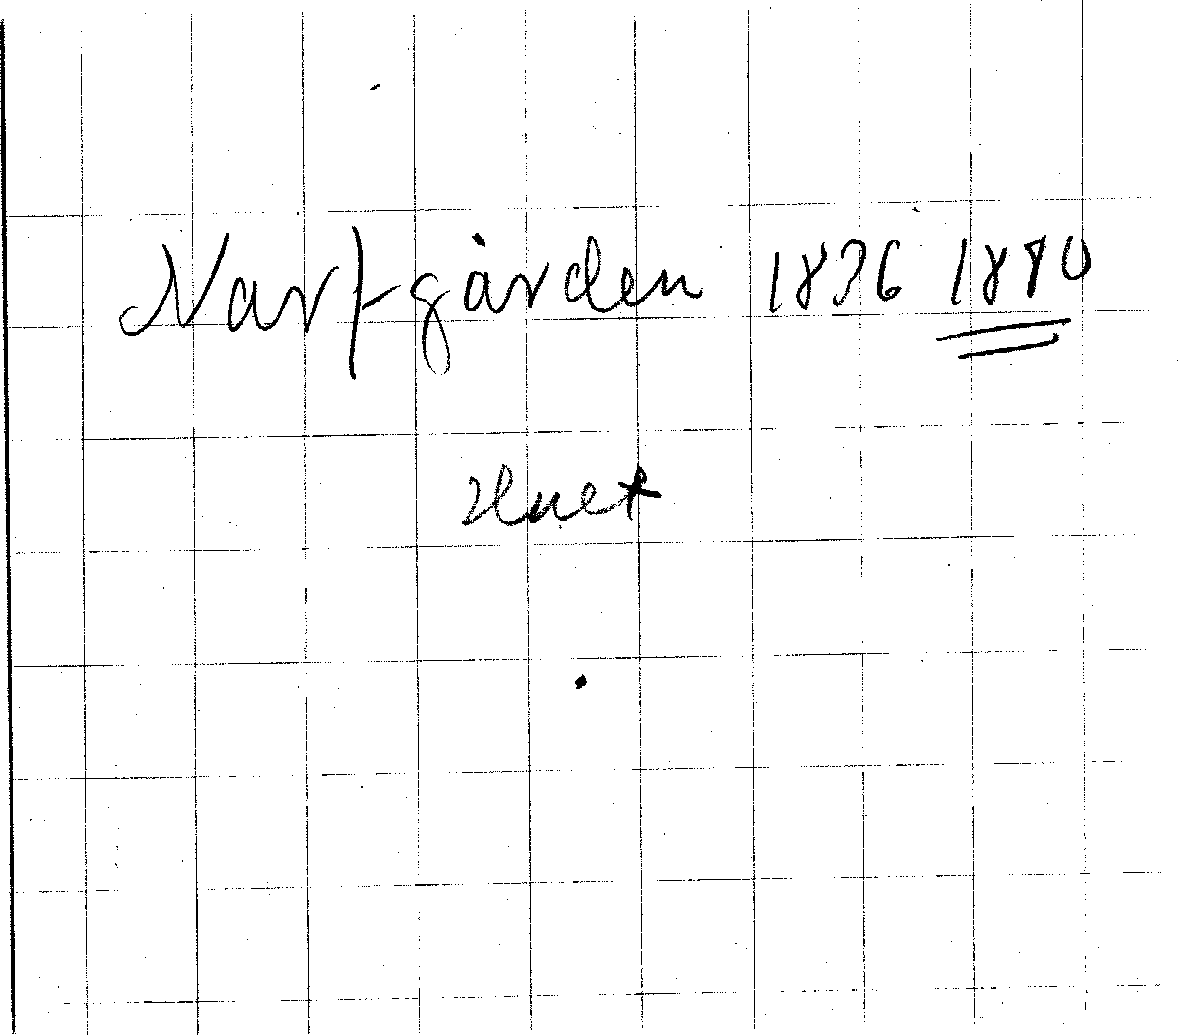 Narfgården 1836 1890
Huet